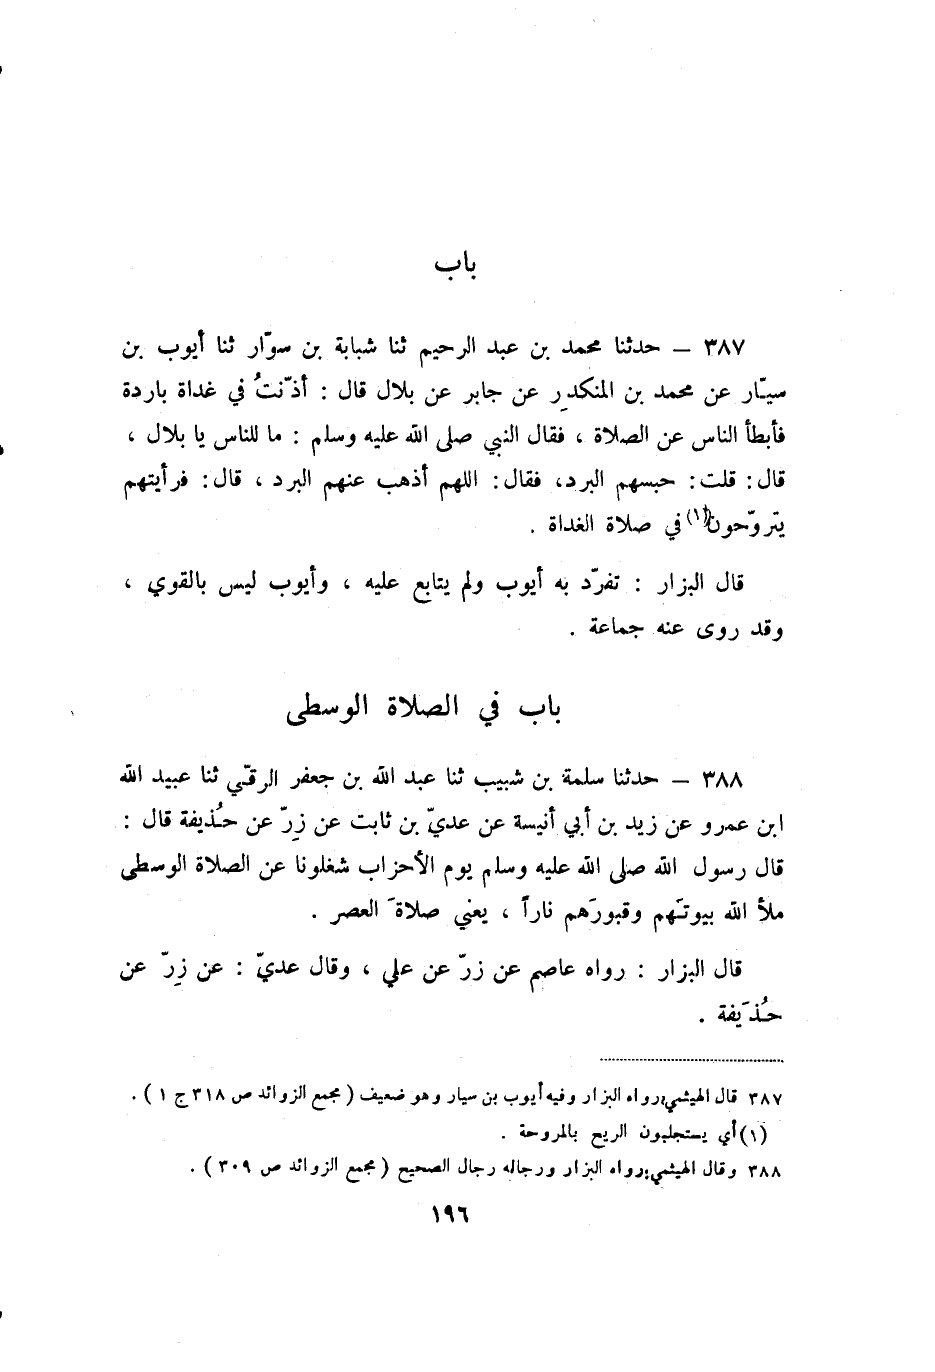 باب
٣٨٧ – حدثنا محمد بن عبد الرحيم ثنا شبابة بن سوّار ثنا أيوب بن
سيّار عن محمد بن المنكدِر عن جابر عن بلال قال : أذّنتُ في غداة باردة
فأبطأ الناس عن الصلاة ، فقال النبي صلى الله عليه وسلم : ما للناس يا بلال ،
قال : قلت : حبسهم البرد ، فقال : اللهم أذهب عنهم البرد ، قال : فرأيتهم
يتروّحون(١) في صلاة الغداة .
قال البزار : تفرّد به أيوب ولم يتابع عليه ، وأيوب ليس بالقوي ،
وقد روى عنه جماعة .
باب في الصلاة الوسطى
٣٨٨ – حدثنا سلمة بن شبيب ثنا عبد الله بن جعفر الرقّي ثنا عبيد الله
ابن عمرو عن زيد بن أبي أنيسة عن عديّ بن ثابت عن زِرّ عن حُذيفة قال :
قال رسول الله صلى الله عليه وسلم يوم الأحزاب شغلونا عن الصلاة الوسطى
ملأ الله بيوتَهم وقبورَهم ناراً ، يعني صلاةَ العصر .
قال البزار : رواه عاصم عن زرّ عن علي ، وقال عديّ : عن زِرّ عن
حُذَيفة .
٣٨٧ قال الهيثمي : رواه البزار وفيه أيوب بن سيار وهو ضعيف ( مجمع الزوائد ص ٣١٨ ج ١ ) .
(١) أي يستجلبون الريح بالمروحة .
٣٨٨ وقال الهيثمي : رواه البزار ورجاله رجال الصحيح ( مجمع الزوائد ص ٣٠٩ ) .
١٩٦